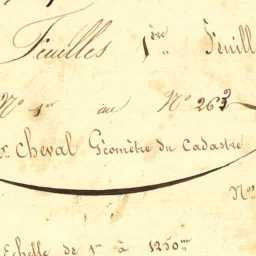 Feuilles 1ère Feuill
N° 1er au N° 263
Cheval Géomètre du Cadastre
Nos
Echelle de 1 à 1250m